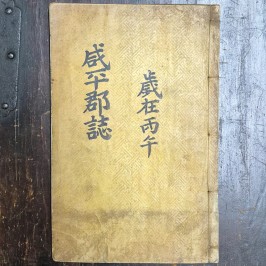 咸平郡誌
歲在丙午